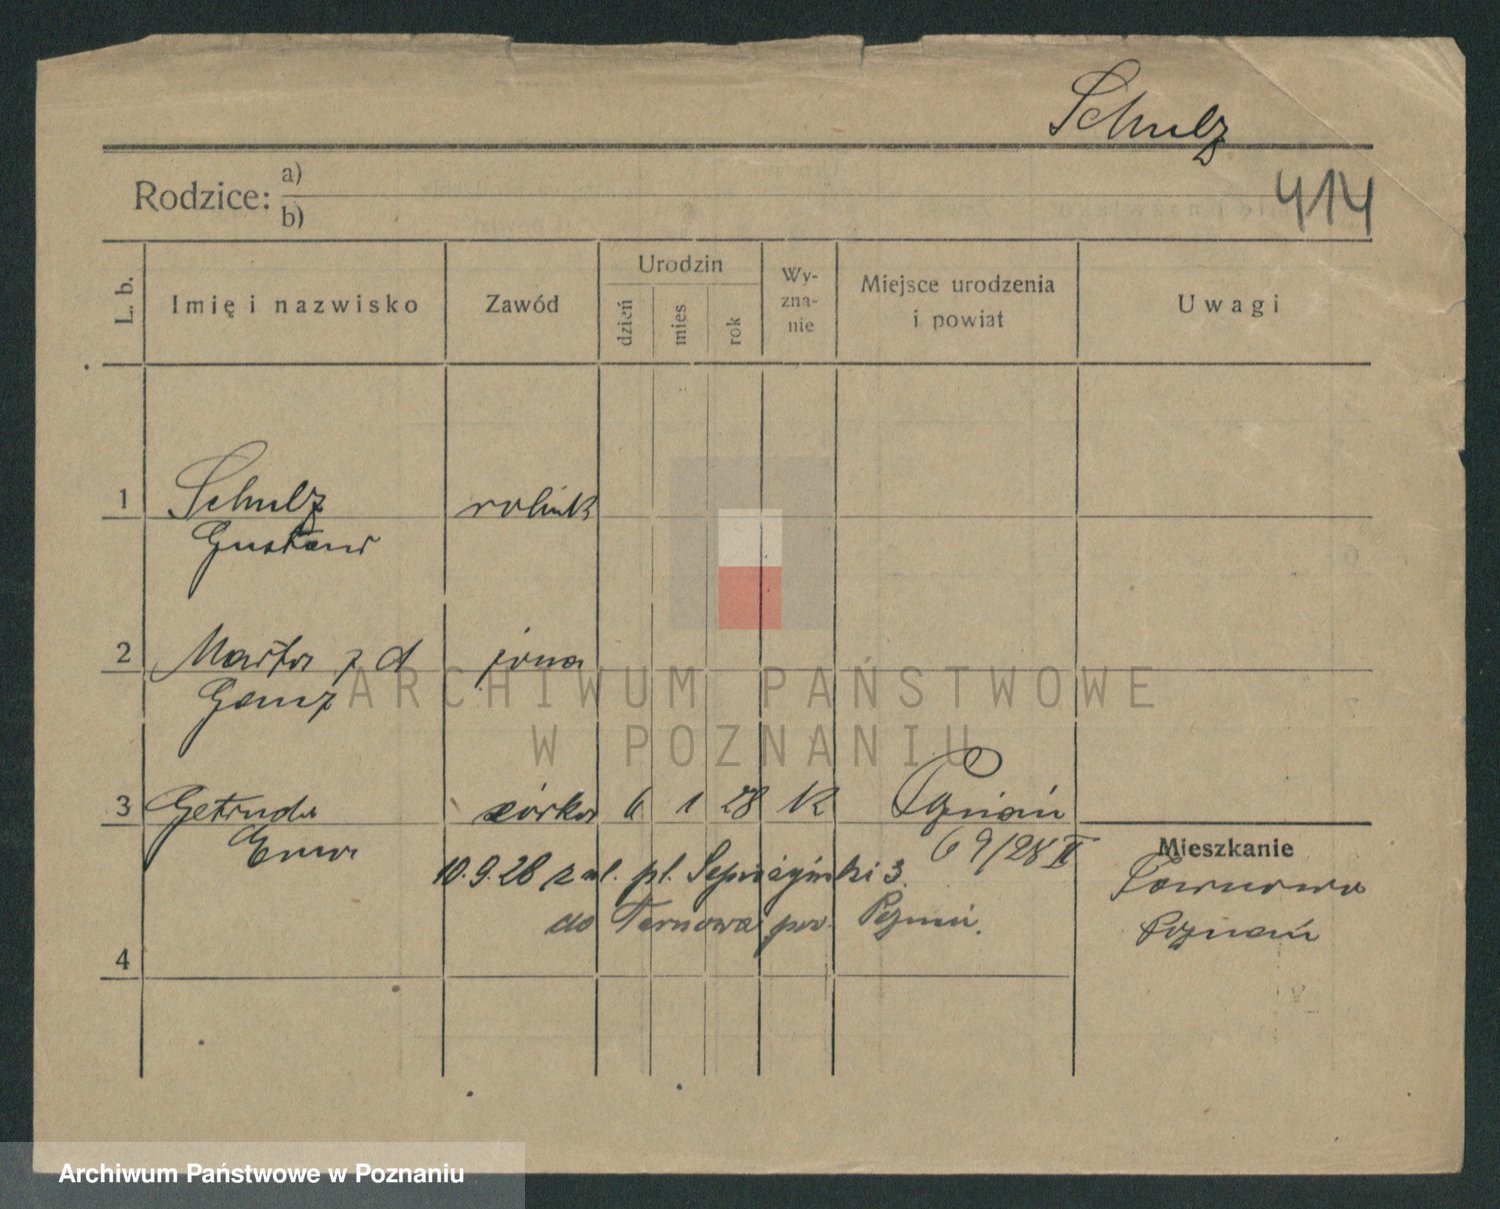 Schulz
414
Rodzice: a)
b)
L. b. Imię i nazwisko Zawód Urodzin dzień mies. rok Wy-zna-nie Miejsce urodzenia i powiat Uwagi
1 Schulz rolnik
Gustaw
2 Marta z d żona
Ganz
3 Getruda córka 6 1 28 K Poznań
Erna 69/28 II
Mieszkanie
10.9.28 z ul. pl. Sapieżyński 3.
Tarnowa
do Tarnowa pow. Poznań.
Poznań
4
ARCHIWUM PAŃSTWOWE
W POZNANIU
Archiwum Państwowe w Poznaniu